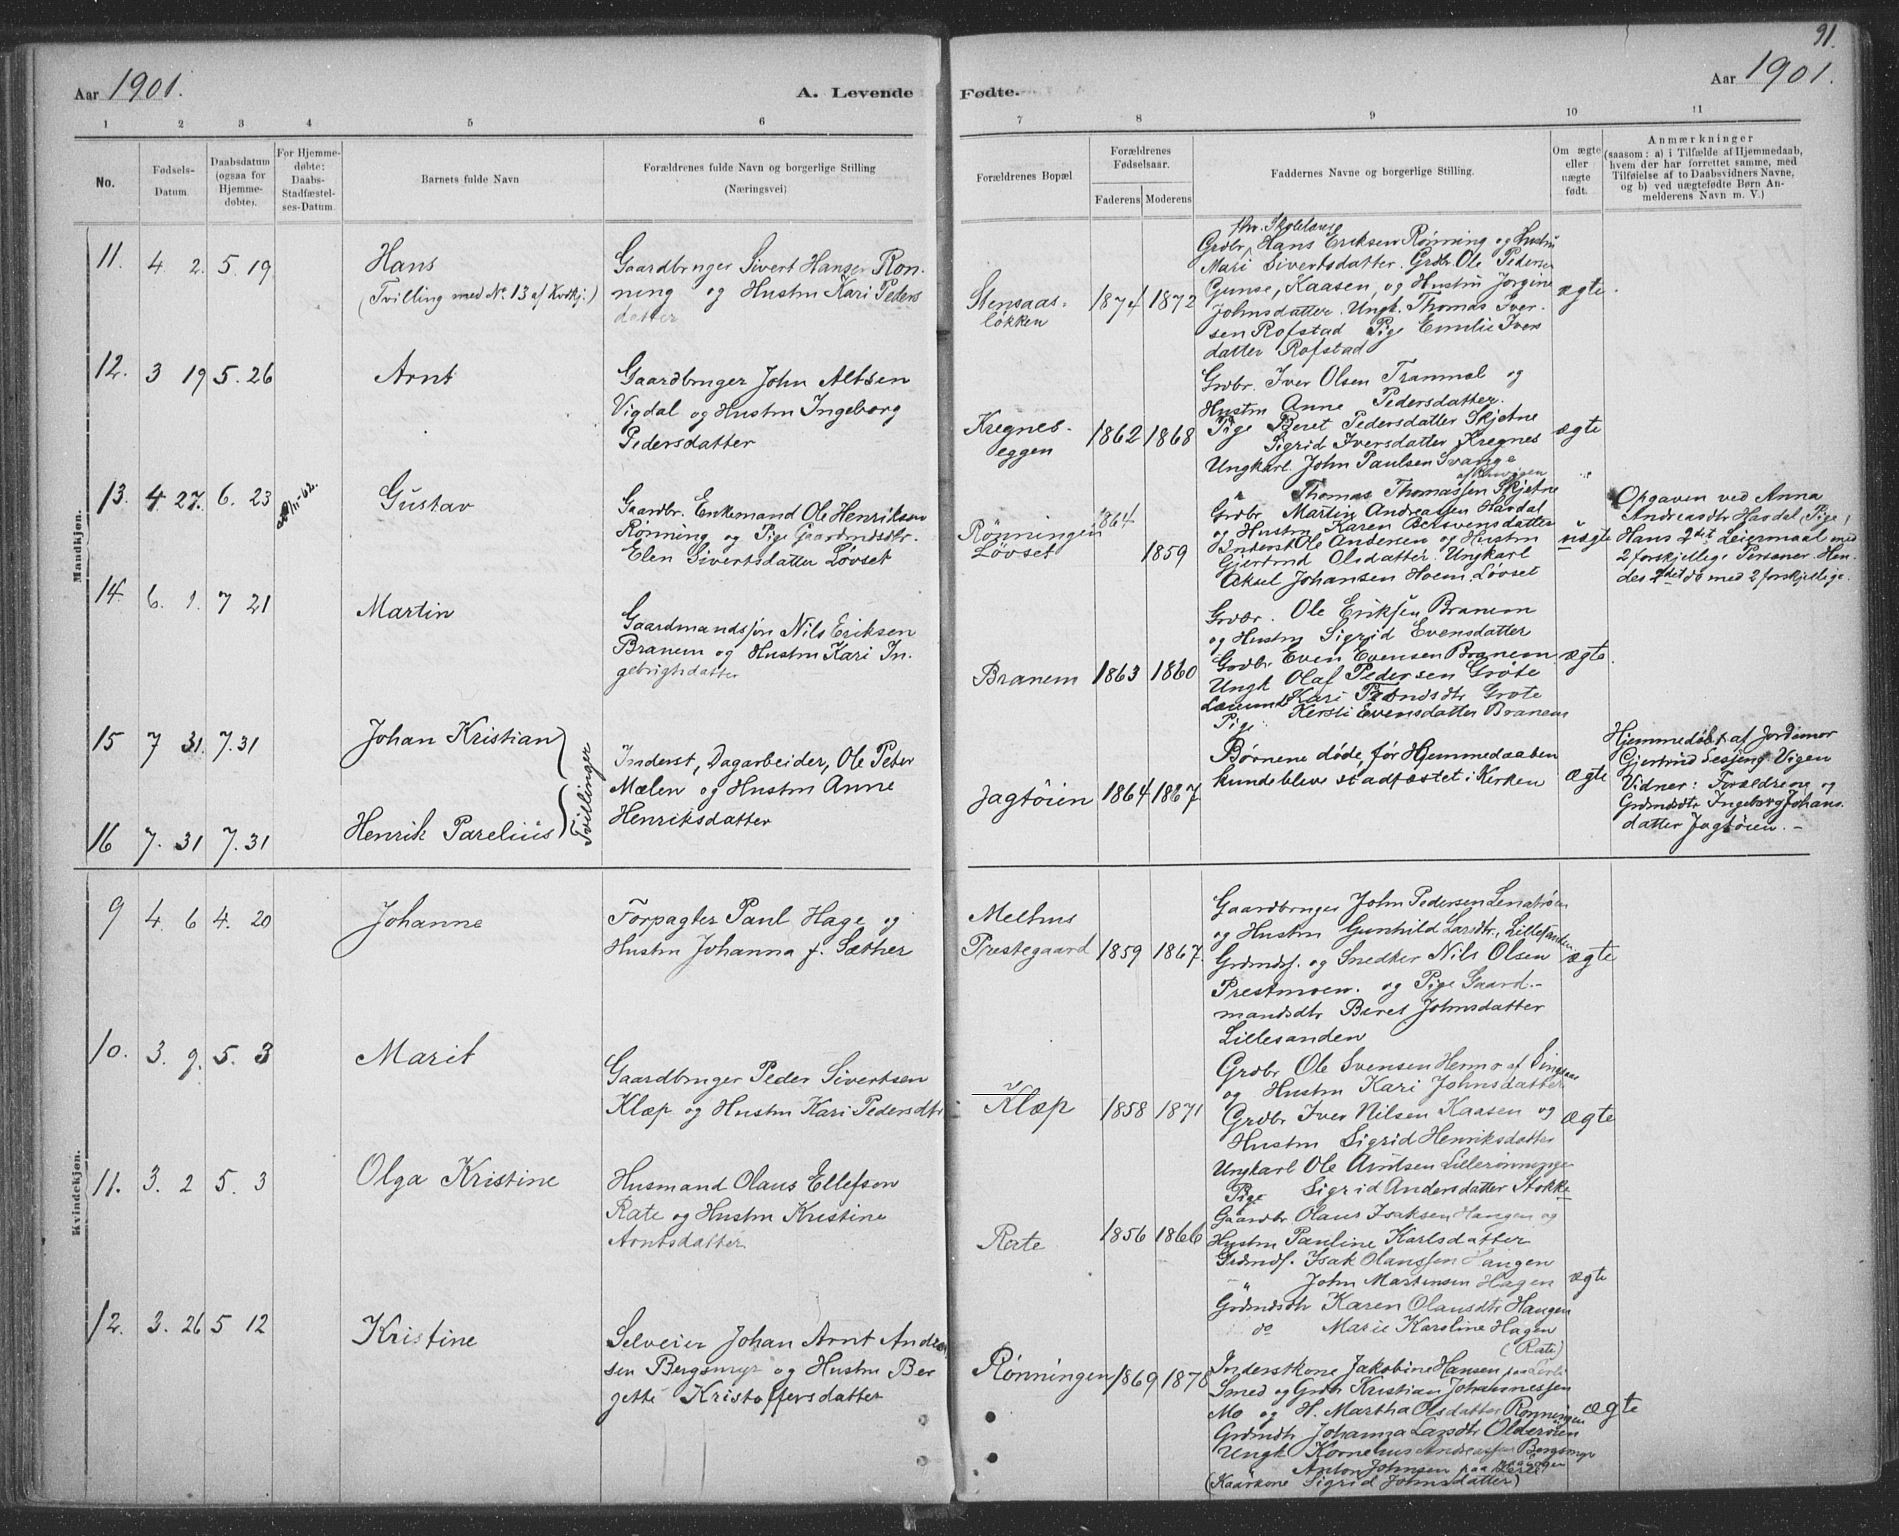 91.
Aar 1901.
A. Levende Fødte.
Aar 1901.
1 2 3 4 5 6 7 8 9 10 11
No.
Fødsels-Datum.
Daabsdatum (ogsaa for Hjemme-døbte).
For Hjemme-døbte: Daabs-Stadfæstel-ses-Datum.
Barnets fulde Navn
Forældrenes fulde Navn og borgerlige Stilling
(Næringsvei)
Forældrenes Bopæl
Forældrenes Fødselsaar.
Faderens Moderens
Faddernes Navne og borgerlige Stilling.
Om ægte eller uægte født.
Anmærkninger
(saasom: a) i Tilfælde af Hjemmedaab, hvem der har forrettet samme, med Tilføielse af to Daabsvidners Navne, og b) ved uægtefødte Børn An-melderens Navn m. V.)
Mandkjøn.
11. 4 2. 5. 19
Hans
(Tvilling med No. 13 af Kvdkj.)
Gaardbruger Sivert Hansen Røn-
ning og Hustru Kari Peders
datter
Stensaas-
løkken
1874 1872
fhv. Skolelærer
Grdbr. Hans Eriksen Rønning og Hustru
Mari Sivertsdatter. Grdbr. Ole Pedersen
Gunse, Kaasen, og Hustru Jørgine
Johnsdatter. Ungk. Thomas Iver-
sen Rofstad Pige Emilie Ivers
datter Rofstad
ægte.
12. 3 19 5. 26
Arnt
Gaardbruger John Altsen
Vigdal og Hustru Ingeborg
Pedersdatter
Kregnes-
eggen
1862 1868
Grdbr. Iver Olsen Tranmæl og
Hustru Anne Pedersdatter.
Pige Beret Pedersdatter Skjetne
Sigrid Iversdatter Kregnes
Ungkarl. John Paulsen
" Thomas Thomassen Skjetne
ægte
13. 4 27. 6. 23
Gustav
Gaardbr. Enkemand Ole Henriksen
Rønning og Pige Gaardmdsdtr.
Elen Sivertsdatter Løvset
Rønningen
Løvset
1864
1859
Grdbr Martin Andreassen Havdal
og Hustru Karen Bersvensdatter
Inderst Ole Andersen og Hustru
Gjertrud Olsdatter. Ungkarl
Aksel Johansen Hoem, Løvset
uægte
Opgaven ved Anna
Andreasdtr Havdal (Pige)
Hans 2det Leiermaal med
2 forskjellige Personer. Hen-
des 2det do med 2 forskjellige.
14. 6. 1. 7 21
Martin
Gaardmandssøn Nils Eriksen
Branem og Hustru Kari In-
gebrigtsdatter
Branem
1863 1860
Grdbr. Ole Eriksen Branem
og Hustru Sigrid Evensdatter
Grdbr Even Evensen Branem
Ungk Olaf Pedersen Grøte
Kari Grøte
Pige Kersti Evensdatter Branem
ægte.
15 7 31. 7. 31
Johan Kristian
Tvillinger
Inderst, Dagarbeider, Ole Peter
Mælen og Hustru Anne
Henriksdatter
Jagtøien
1864 1867
Børnene døde, før Hjemmedaaben
kunde bleve stadfæstet i Kirken
ægte
Hjemmedøbt af Jordemor
Gjertrud Lesjeng Vigen
Vidner: Forældrene og
Grdmdsdtr Ingeborg Johans-
datter Jagtøien. —
16 7. 31 7. 31
Henrik Parelius
Kvindekjøn.
9 4 6 4. 20
Johanne
Forpagter Paul Hage og
Hustru Johanna f. Sæther
Melhus
Prestegaard
1859 1867.
Gaardbruger John Pedersen
og Hustru Gunhild Larsdtr., Lillesanden
Grdmds. og Snedker Nils Olsen
Prestmoen. og Pige Gaard-
mandsdtr Beret Johnsdatter
Lillesanden
ægte
10. 3. 9. 5. 3
Marit
Gaardbruger Peder Sivertsen
Klæp og Hustru Kari Pedersdtr
Klæp
1858 1871
Grdbr Ole Svensen Hermo af Singsaas
og Hustru Kari Johnsdatter
Grdbr Iver Nilsen Kaasen og
Hustru Sigrid Henriksdatter
Ungkarl Ole Arntsen Lillerønningen
Pige Sigrid Andersdatter Stokke
ægte
11. 3. 2 5. 3
Olga Kristine
Husmand Olaus Ellefsen
Rate og Hustru Kristine
Arntsdatter
Rate
1856 1866
Gaardbr Olaus Isaksen Haugen og
Hustru Pauline Karlsdatter
Grdmds. Isak Olaussen Haugen
" John Martinsen Hagen
Grdmdsdtr Karen Olausdtr Haugen
do Marie Karoline Hagen
(Rate)
ægte
12. 3. 26 5 12
Kristine
Selveier Johan Arnt Andrea-
sen Bergsmyr og Hustru Ber
gette Kristoffersdatter
Rønningen
1869 1878
Inderstkone Jakobine Hansen
Smed og Grdbr Kristian Johannessen
Mo og H. Martha Olsdatter Rønningen
Grdmdtr Johanna Larsdtr Olderøien
Ungk Kornelius Andreassen Bergsmyr
Anton Johnsen
(Kaarkone Sigrid Johnsdatter)
ægte